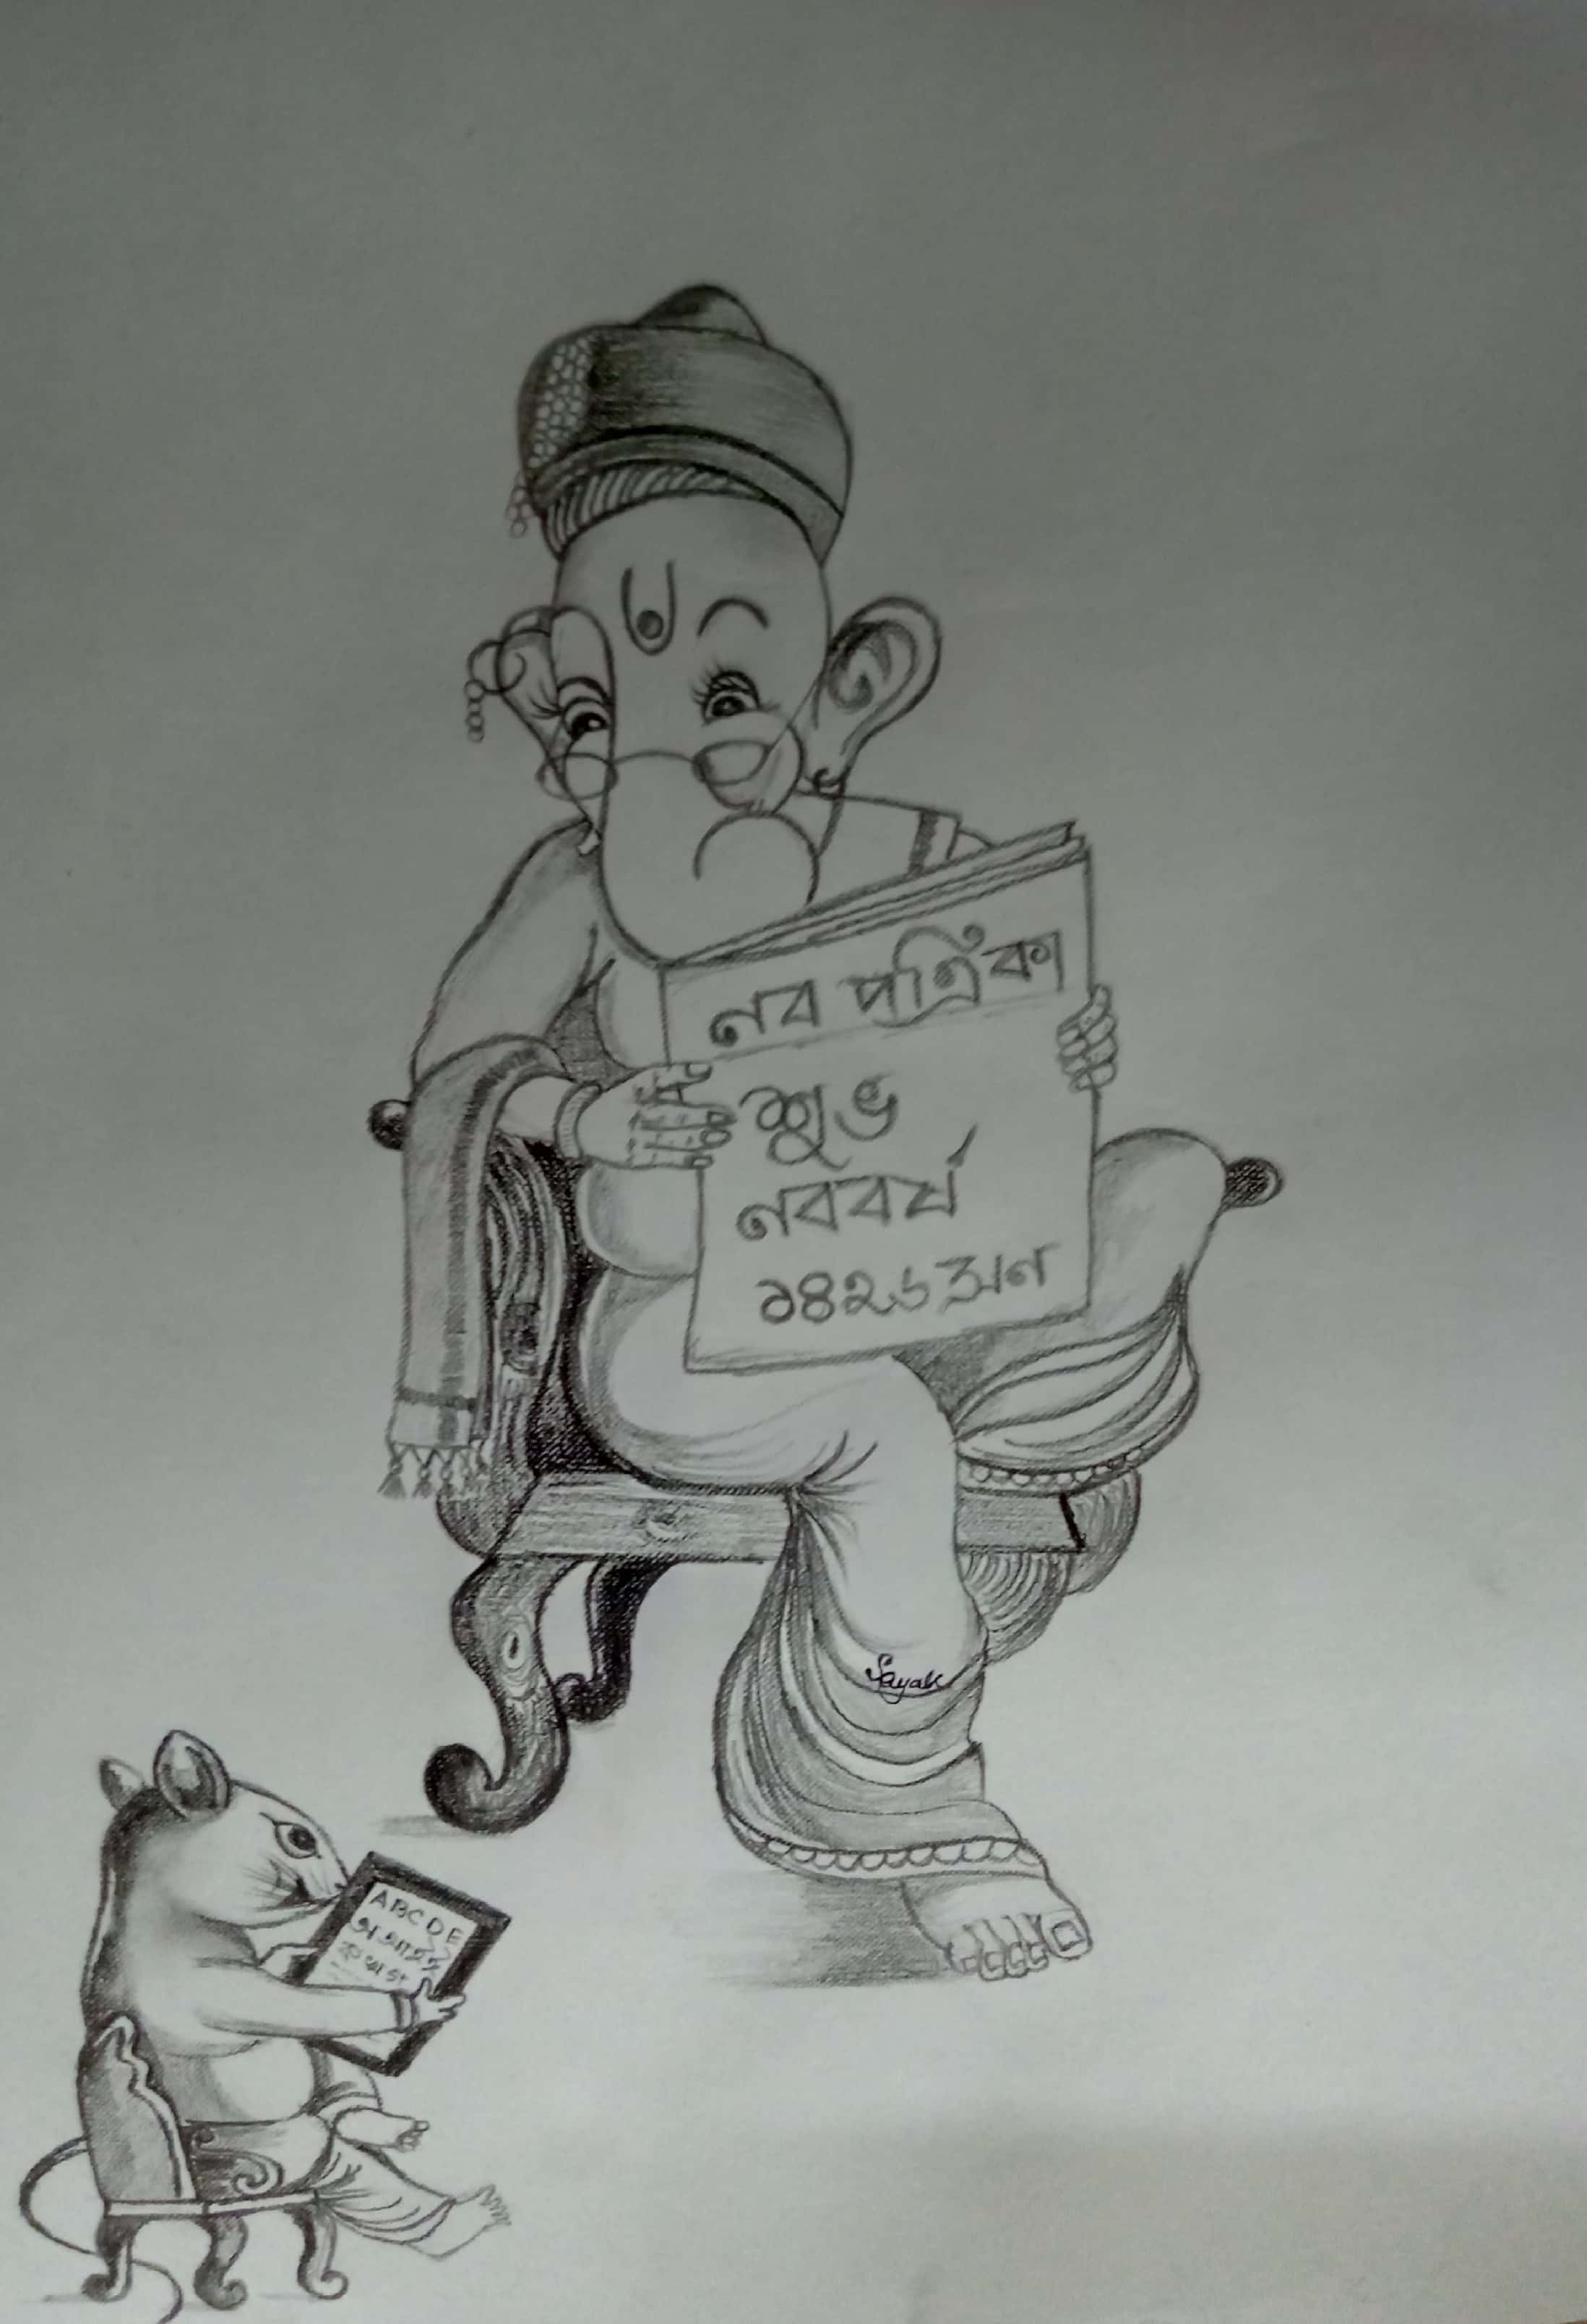 নব পত্রিকা
শুভ
নববর্ষ
১৪২৬ সন
Sayak
ABCDE
অ আ ই ঈ
ক খ গ